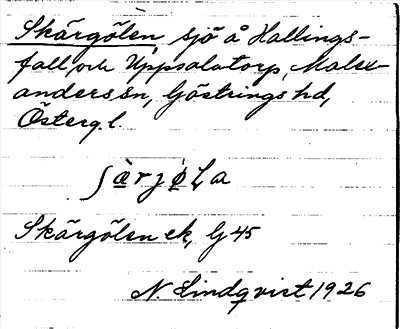 Skärgölen sjö å Hallings-
fall, och Uppsalatorp, Malex-
anders sn, Göstrings hd,
Österg. l.
ʃæ̀rjø̀La
Skärgölen ek, Gj 45
N. Lindqvist 1926